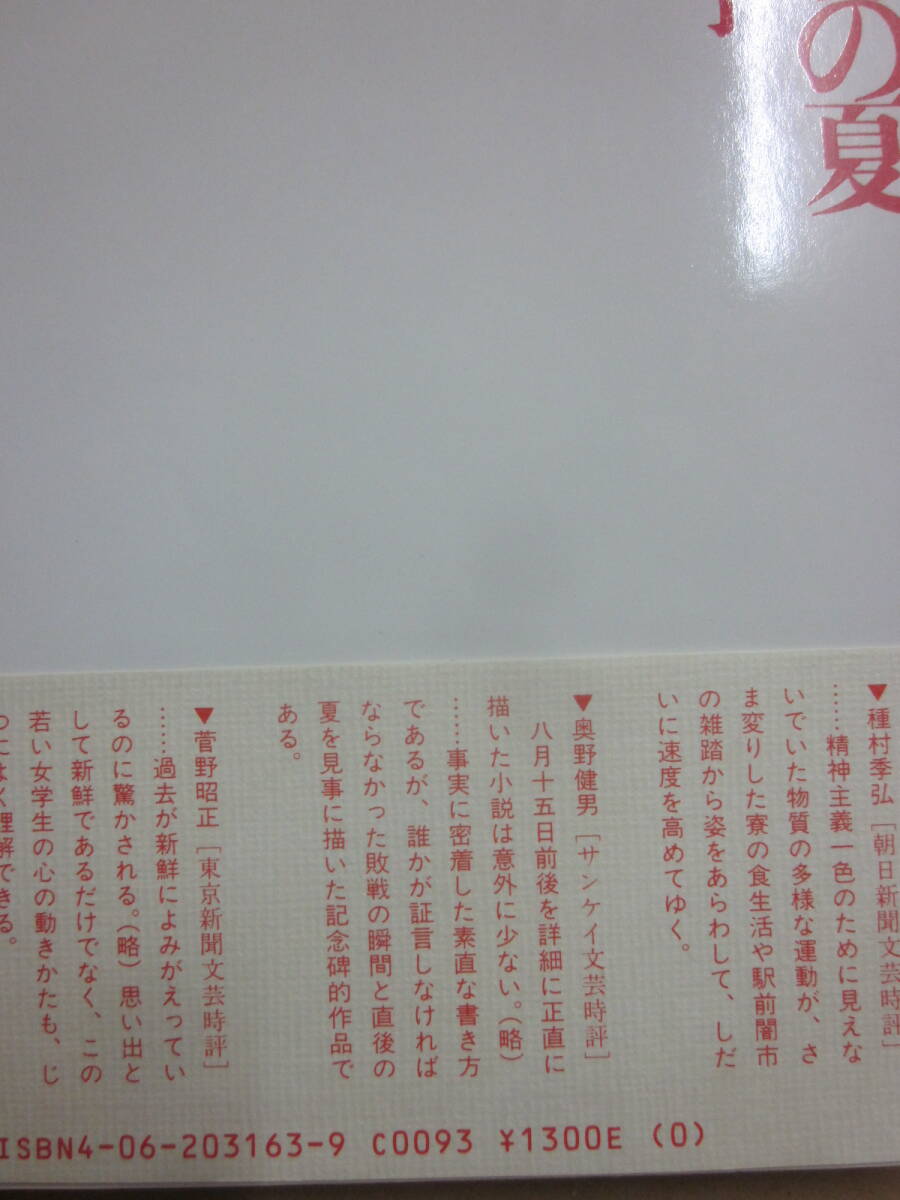 の夏
▼種村季弘［朝日新聞文芸時評］
……精神主義一色のために見えな
いでいた物質の多様な運動が、さ
ま変りした寮の食生活や駅前闇市
の雑踏から姿をあらわして、しだ
いに速度を高めてゆく。
▼奥野健男［サンケイ文芸時評］
八月十五日前後を詳細に正直に
描いた小説は意外に少ない。（略）
……事実に密着した素直な書き方
であるが、誰かが証言しなければ
ならなかった敗戦の瞬間と直後の
夏を見事に描いた記念碑的作品で
ある。
▼菅野昭正［東京新聞文芸時評］
……過去が新鮮によみがえってい
るのに驚かされる。（略）思い出と
して新鮮であるだけでなく、この
若い女学生の心の動きかたも、じ
つによく理解できる。
ISBN4-06-203163-9 C0093 ¥1300E (0)